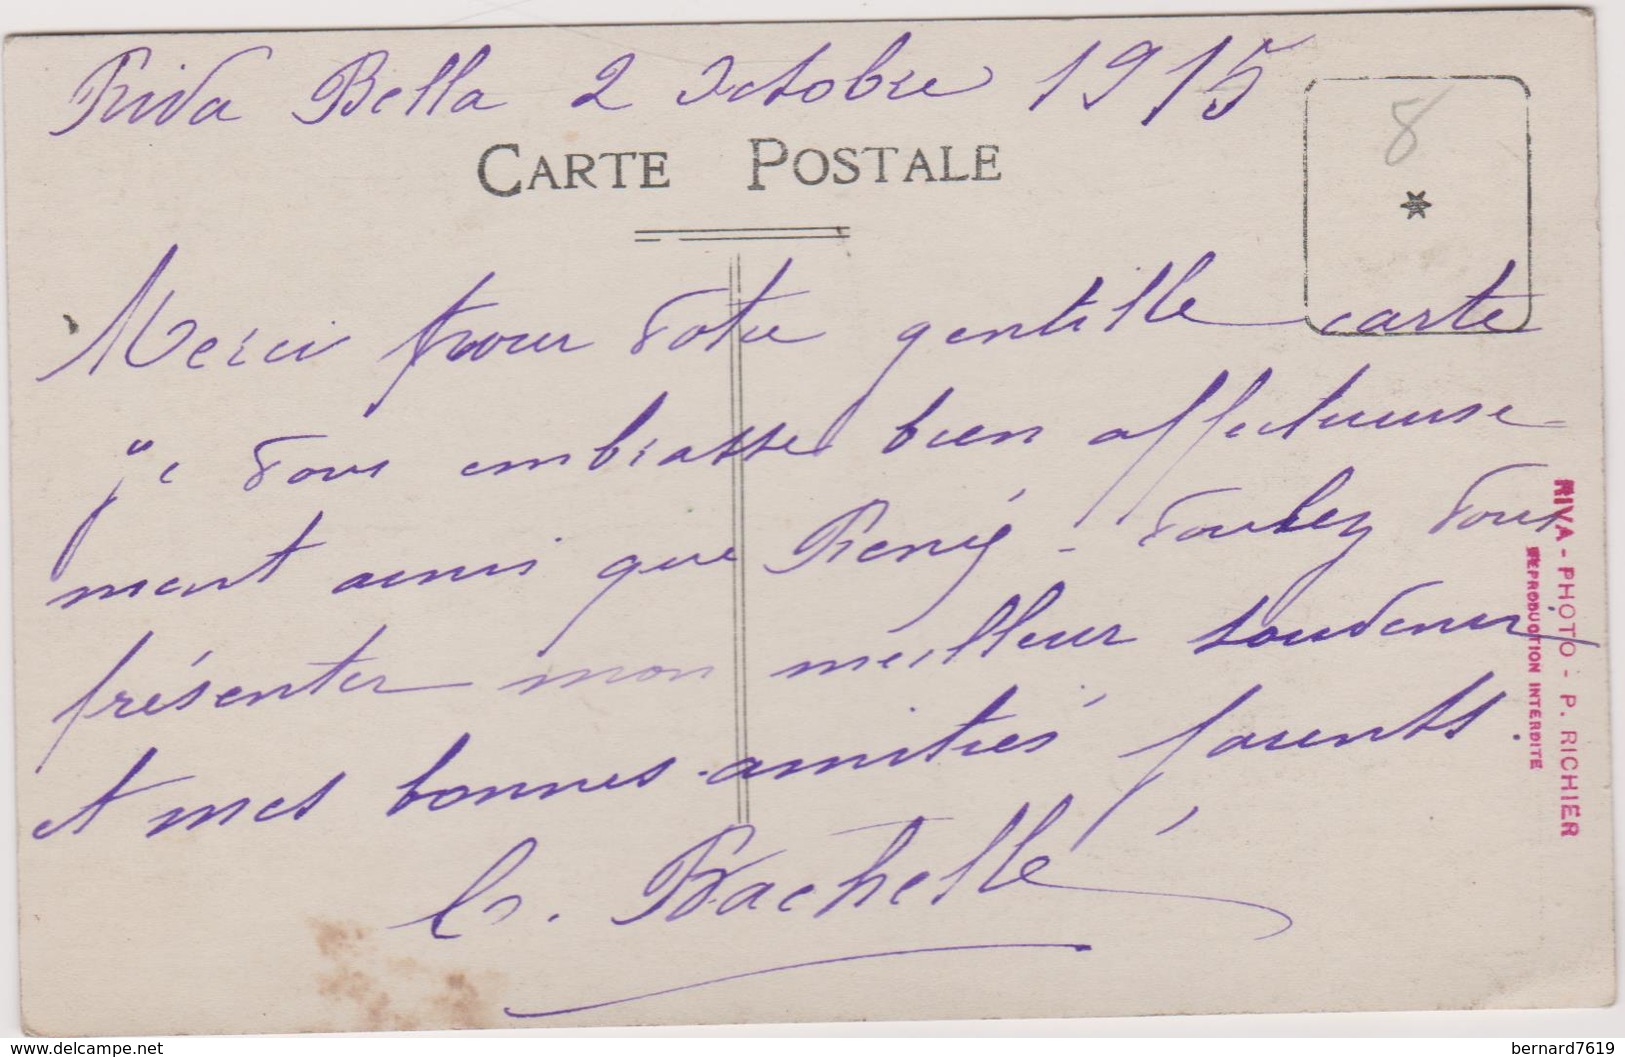 Riva Bella 2 Octobre 1915
CARTE POSTALE
8
Merci pour votre gentille carte
je vous embrasse bien affectueuse-
ment ainsi que René - voulez vous
présenter mon meilleur souvenir
et mes bonnes amitiés parents.
Rachelle
RIVA-PHOTO - P. RICHIER
REPRODUCTION INTERDITE
www.delcampe.net
bernard7619